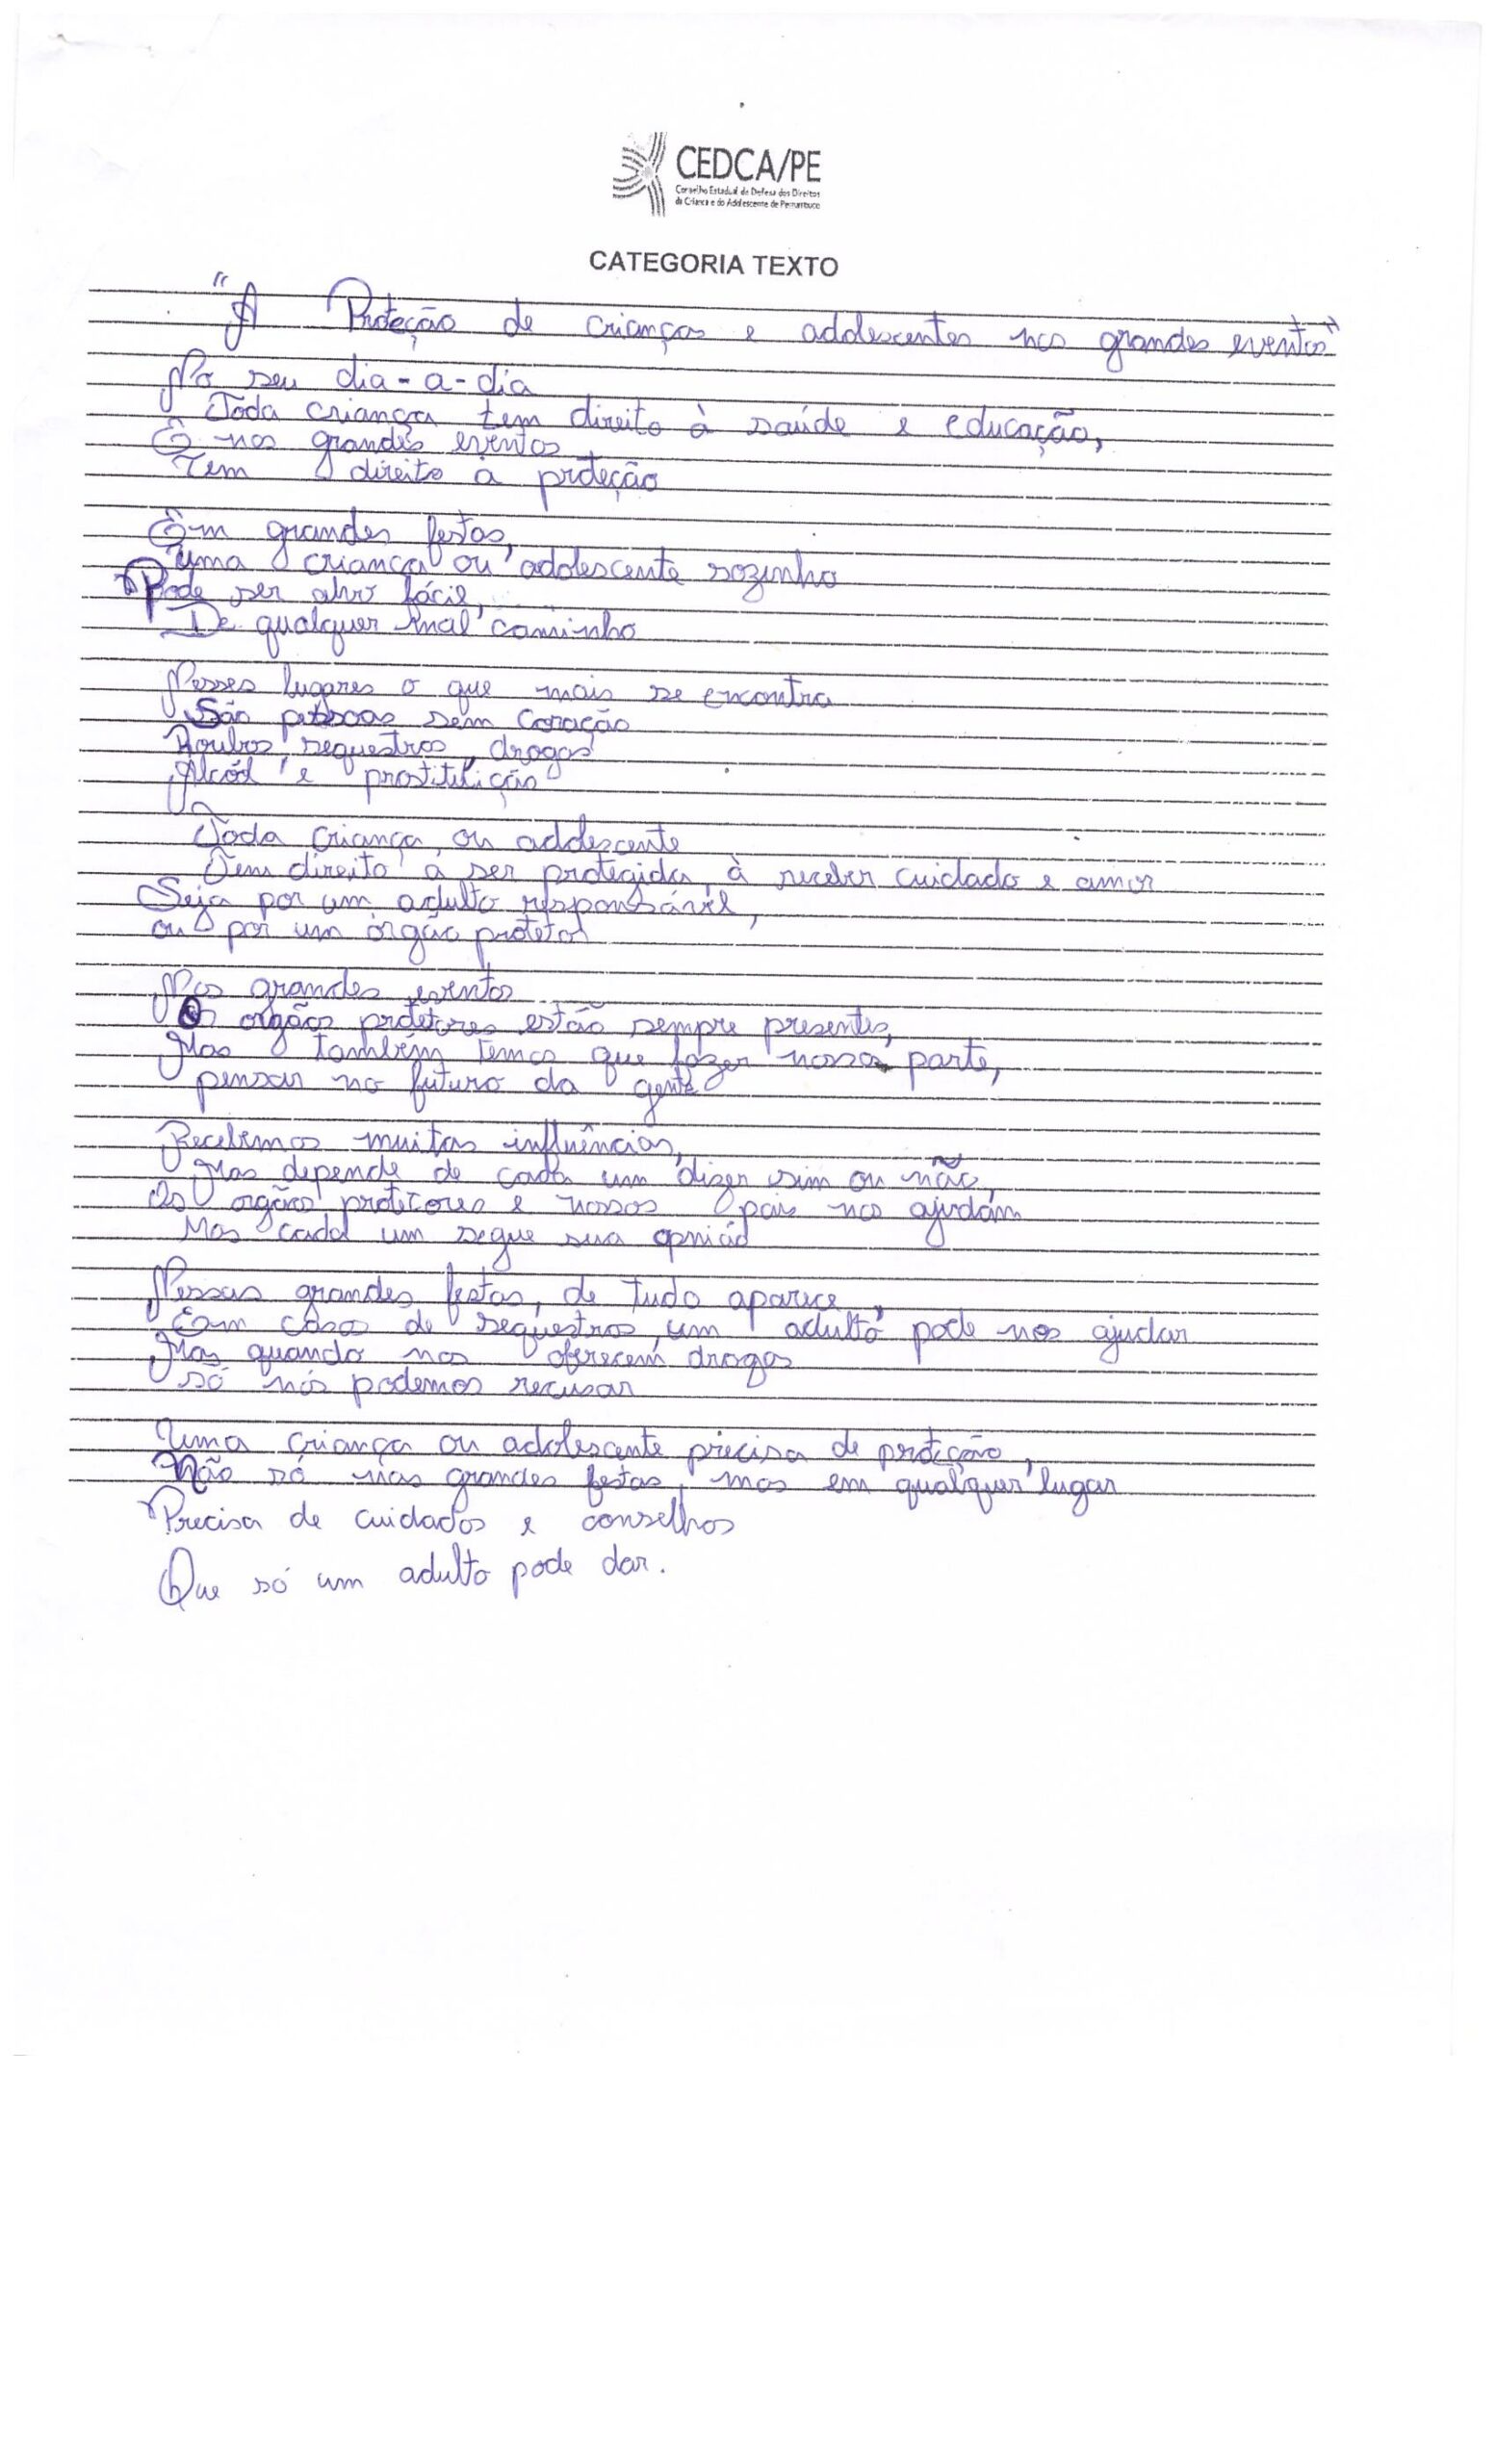 CEDCA/PE
Conselho Estadual de Defesa dos Direitos
da Criança e do Adolescente de Pernambuco
CATEGORIA TEXTO
"A Proteção de crianças e adolescentes nos grandes eventos"
No seu dia-a-dia
Toda criança tem direito à saúde e educação,
E nos grandes eventos
Tem direito a proteção
Em grandes festas,
Uma criança ou adolescente sozinho
Pode ser alvo fácil,
De qualquer mal caminho
Nesses lugares o que mais se encontra
São pessoas sem coração
Roubos, sequestros, drogas
Alcóol e prostitüição
Toda criança, ou adolescente
Tem direito a ser protegida, à receber cuidado e amor
Seja por um adulto responsável,
ou por um órgão protetor
Nos grandes eventos
Os orgãos protetores estão sempre presentes,
Mas também temos que fazer nossa parte,
pensar no futuro da gente
Recebemos muitas influências,
Mas depende de cada um dizer sim ou não,
Os orgãos protetores e nossos pais nos ajudam
Mas cada um segue sua opnião
Nessas grandes festas, de tudo aparece,
Em casos de sequestros, um adulto pode nos ajudar
Mas quando nos oferecem drogas
só nós podemos recusar
Uma criança ou adolescente precisa de proteção,
Não só nas grandes festas, mas em qualquer lugar
Precisa de cuidados e conselhos
Que só um adulto pode dar.